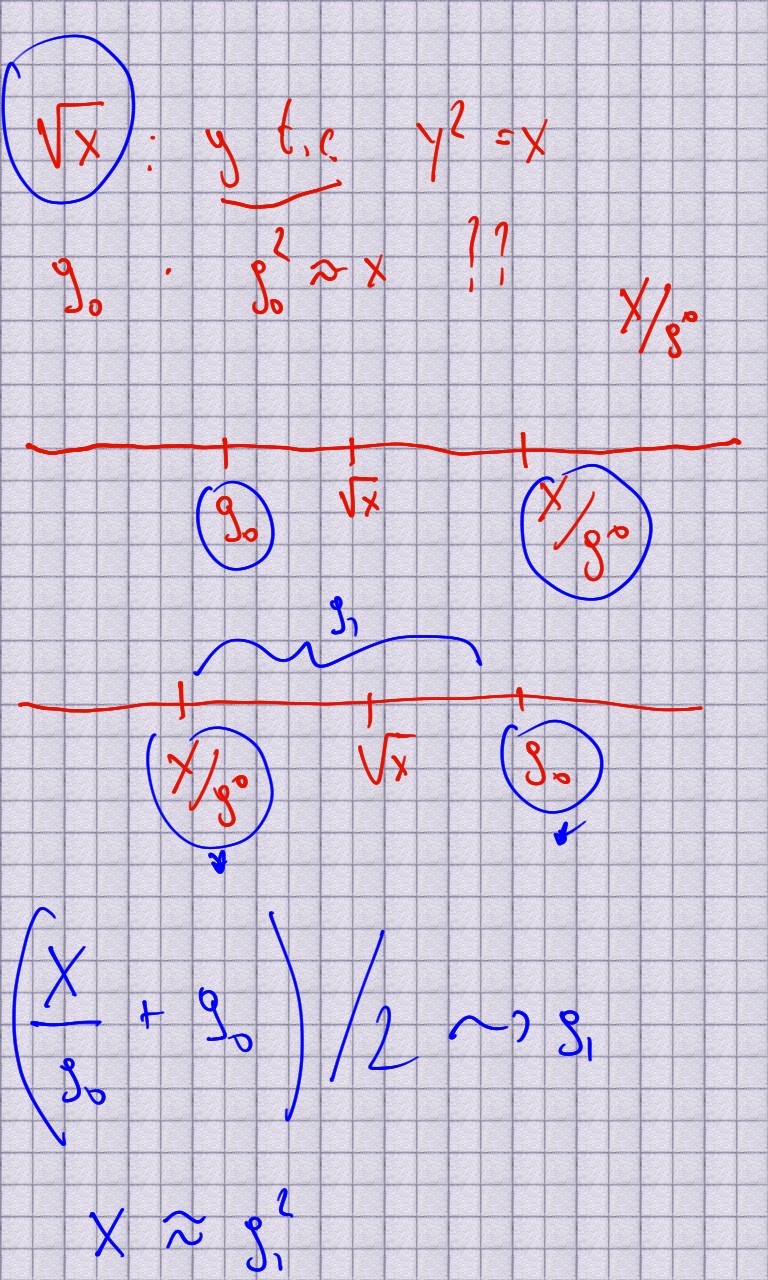 √x : y t.c. y² = x
g₀ : g₀² ≈ x !!
x/g₀
g₀ √x x/g₀
g₁
x/g₀ √x g₀
(x/g₀ + g₀)/2 ⤳ g₁
x ≈ g₁²